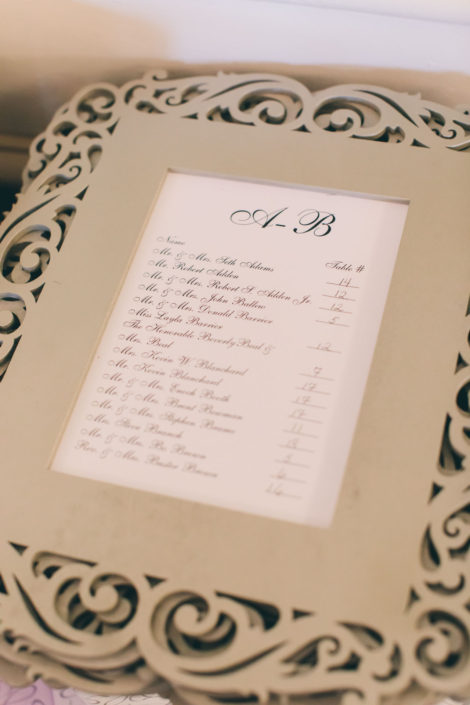 A-B
Name Table #
Mr. & Mrs. Seth Adams 14
Mr. Robert Alden 12
Mr. & Mrs. Robert S. Alden Jr. 12
Mr. & Mrs. John Ballew 5
Mr. & Mrs. Donald Barrier
Miss Layla Barrier 12
The Honorable Beverly Beal &
Mrs. Beal 7
Mrs. Kevin W. Blanchard 17
Mr. Kevin Blanchard 17
Mr. & Mrs. Enoch Booth 17
Mr. & Mrs. Brent Bowman 11
Mr. & Mrs. Stephen
Mrs. Stern Branch
Mr. & Mrs. Bo Brown
Rev. & Mrs. Buster Brown